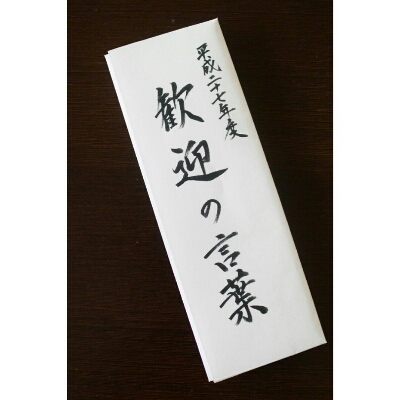 平成二十七年度
歓迎の言葉